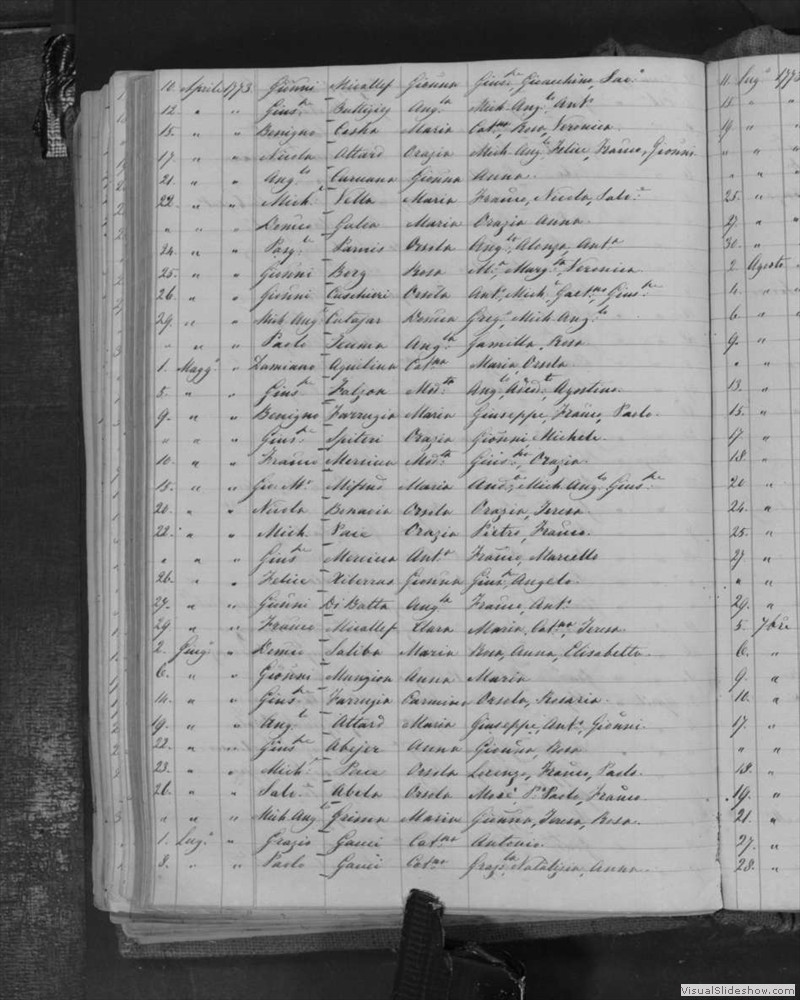 10. Aprile 1773. Gioñni Micallef Gioñna Gius.e Gioacchino, Sal.e
12. " " Gius.e Buttigieg Ang.la Mich. Ang.lo Ant.o
15. " " Benigno Costa Maria Cat.na Rosa, Veronica.
17. " " Nicola Attard Orazia Mich. Ang.lo Felice, Franco, Gioñni
21. " " Ang.lo Caruana Gioñna Anna
22. " " Mich.e Vella Maria Franco, Nicola, Salv.e
" " " Demco Galea Maria Orazia Anna
24. " " Pasq.le Parnis Orsola Ang.lo Alonzo, Ant.a
25. " " Gioñni Borg Rosa M.a Marg.ta Veronica
26. " " Gioñni Cuschieri Orsola Ant.o, Mich.e Gaet.no Gius.e
29. " " Mich. Ang.lo Cutajar Demca Greg.o Mich. Ang.lo
" " " Paolo Ang.la Camilla Rosa
1. Magg.o " Damiano Aquilina Cat.na Maria, Orsola
5. " " Gius.e Falzon Mod.ta Ang.lo Agostino
9. " " Benigno Farrugia Maria Giuseppe, Franco, Paolo
" " " Gius.e Spiteri Orazia Gioñni, Michele
10. " " Franco Mercieca Mod.ta Gius.e, Orazia
15. " " Gio. M.a Mifsud Maria And.a Mich. Ang.lo Gius.e
20. " " Nicola Bonavia Orsola Orazia, Teresa
22. " " Mich. Pace Orazia Pietro, Franco.
" " " Gius.e Mercieca Ant.a Franco, Marcello
26. " " Felice Xiberras Gioñna Gius.e Angelo.
27. " " Gioñni Di Batta Ang.la Franco, Ant.o
29. " " Franco Micallef Clara Maria, Cat.na, Teresa
2. Giug.o " Demco Saliba Maria Rosa, Anna, Elisabetta.
6. " " Gioñni Mangion Anna Maria
14. " " Gius.e Farrugia Carmina Orsola, Rosaria.
19. " " Ang.lo Attard Maria Giuseppe, Ant.o, Gioñni
22. " " Gius.e Abejer Anna Gioñna, Rosa
23. " " Mich.e Pace Orsola Lorenzo, Franco, Paolo.
26. " " Salv.e Abela Orsola Mosè Paolo, Franco
" " " Mich. Ang.lo Grima Maria Gioñna, Teresa, Rosa.
1. Lug.o " Grazio Gauci Cat.na Antonio.
3. " " Paolo Gauci Cat.na Graz.la Natalizia, Anna.
11. Lug.o 1773
15. " "
19. " "
" " "
" " "
25. " "
27. " "
30. " "
2. Agosto "
4. " "
6. " "
9. " "
" " "
13. "
15. "
17. "
18. "
20 "
24. "
25. "
27 "
" "
29. "
5. 7bre
6. "
9. "
10. "
17. "
" "
18. "
19. "
21. "
27. "
28. "
VisualSlideshow.com